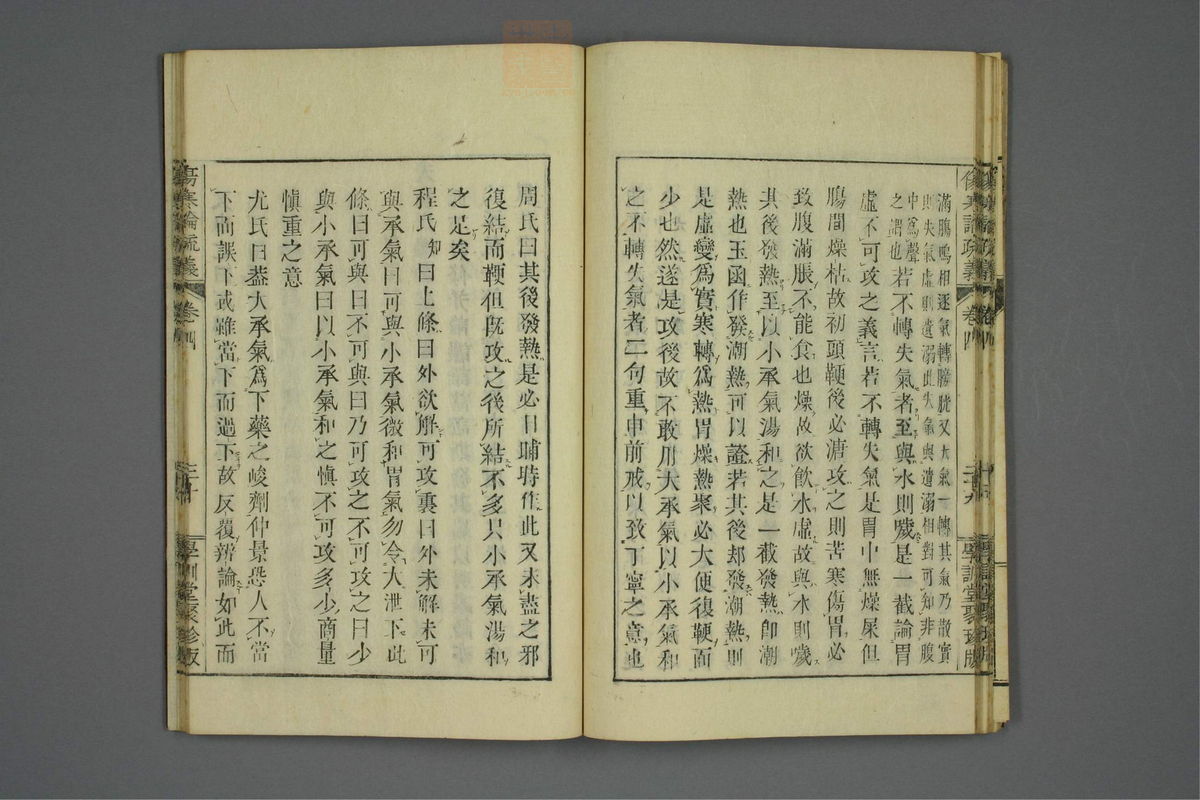 滿腸鳴相逐氣轉膀胱又大氣一轉其氣乃散實
則失氣虛則遺溺此失氣與遺溺相對可知非腹
中爲聲
之謂也若不轉失氣者至與水則噦是一截論胃
虛不可攻之義言若不轉失氣是胃中無燥屎但
腸間燥枯故初頭鞕後必溏攻之則苦寒傷胃必
致腹滿脹不能食也燥故欲飮水虛故與水則噦
其後發熱至以小承氣湯和之是一截發熱卽潮
熱也玉函作發潮熱可以證若其後却發潮熱則
是虛變爲實寒轉爲熱胃燥熱聚必大便復鞕而
少也然遂是攻後故不敢用大承氣以小承氣和
之不轉失氣者二句重申前戒以致丁寧之意也
傷寒論疏義
卷四
三十九
學訓堂聚珍版
周氏曰其後發熱是必日晡時作此又未盡之邪
復結而鞕但既攻之後所結不多只小承氣湯和
之足矣
程氏知曰上條曰外欲解可攻裏曰外未解未可
與承氣曰可與小承氣微和胃氣勿令大泄下此
條曰可與曰不可與曰乃可攻之不可攻之曰少
與小承氣曰以小承氣和之愼不可攻多少商量
愼重之意
尤氏曰葢大承氣爲下藥之峻劑仲景恐人不當
下而誤下或雖當下而過下故反覆辨論如此而
傷寒論疏義
卷四
學訓堂聚珍版